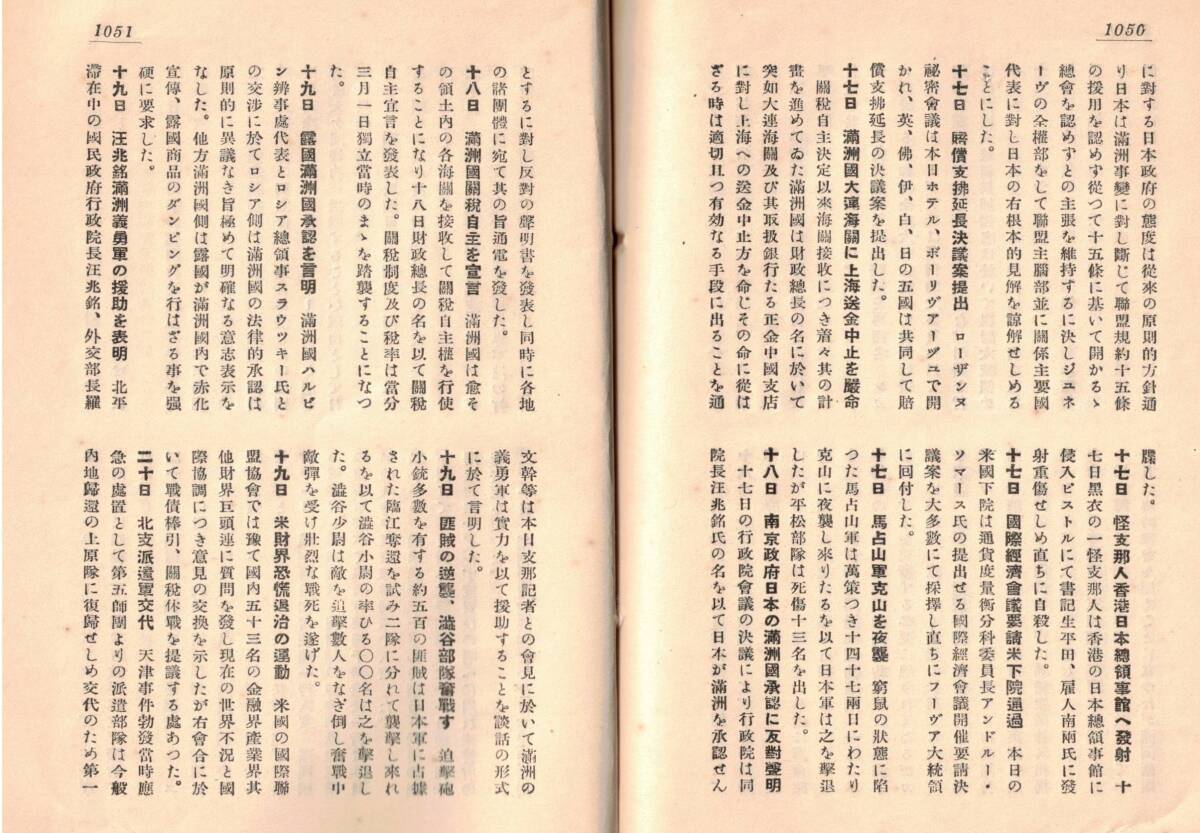 1050
に對する日本政府の態度は從來の原則的方針通
り日本は滿洲事變に對し斷じて聯盟規約十五條
の援用を認めず從つて十五條に基いて開かるゝ
總會を認めずとの主張を維持するに決しジユネ
ーヴの全權部をして聯盟主腦部並に關係主要國
代表に對し日本の右根本的見解を諒解せしめる
ことにした。
十七日　賠償支拂延長決議案提出　ローザンヌ
祕密會議は本日ホテル、ボーリヴアーヅユで開
かれ、英、佛、伊、白、日の五國は共同して賠
償支拂延長の決議案を提出した。
十七日　滿洲國大連海關に上海送金中止を嚴命
關稅自主決定以來海關接收につき着々其の計
畫を進めてゐた滿洲國は財政總長の名に於いて
突如大連海關及び其取扱銀行たる正金中國支店
に對し上海への送金中止方を命じその命に從は
ざる時は適切且つ有効なる手段に出ることを通
牒した。
十七日　怪支那人香港日本總領事館へ發射　十
七日黑衣の一怪支那人は香港の日本總領事館に
侵入ピストルにて書記生平田、雇人南兩氏に發
射重傷せしめ直ちに自殺した。
十七日　國際經濟會議要請米下院通過　本日の
米國下院は通貨度量衡分科委員長アンドルー・
ソマース氏の提出せる國際經濟會議開催要請決
議案を大多數にて採擇し直ちにフーヴア大統領
に回付した。
十七日　馬占山軍克山を夜襲　窮鼠の狀態に陷
つた馬占山軍は萬策つき十四十七兩日にわたり
克山に夜襲し來りたるを以て日本軍は之を擊退
したが平松部隊は死傷十三名を出した。
十八日　南京政府日本の滿洲國承認に反對聲明
十七日の行政院會議の決議により行政院は同
院長汪兆銘氏の名を以て日本が滿洲を承認せん
1051
とするに對し反對の聲明書を發表し同時に各地
の諸團體に宛て其の旨通電を發した。
十八日　滿洲國關稅自主を宣言　滿洲國は愈そ
の領土內の各海關を接收して關稅自主權を行使
することになり十八日財政總長の名を以て關稅
自主宣言を發表した。關稅制度及び稅率は當分
三月一日獨立當時のまゝを踏襲することになつ
た。
十九日　露國滿洲國承認を言明　滿洲國ハルビ
ン辨事處代表とロシア總領事スラウツキー氏と
の交涉に於てロシア側は滿洲國の法律的承認は
原則的に異議なき旨極めて明確なる意志表示を
なした。他方滿洲國側は露國が滿洲國內で赤化
宣傳、露國商品のダンピングを行はざる事を强
硬に要求した。
十九日　汪兆銘滿洲義勇軍の援助を表明　北平
滯在中の國民政府行政院長汪兆銘、外交部長羅
文幹等は本日支那記者との會見に於いて滿洲の
義勇軍は實力を以て援助することを談話の形式
に於て言明した。
十九日　匪賊の逆襲、澁谷部隊奮戰す　迫擊砲
小銃多數を有する約五百の匪賊は日本軍に占據
された臨江奪還を試み二隊に分れて襲擊し來れ
るを以て澁谷小尉の率ひる〇〇名は之を擊退し
た。澁谷少尉は敵を追擊數人をなぎ倒し奮戰中
敵彈を受け壯烈な戰死を遂げた。
十九日　米財界恐慌退治の運動　米國の國際聯
盟協會では豫て國內五十三名の金融界產業界其
他財界巨頭連に質問を發し現在の世界不況と國
際協調につき意見の交換を示したが右會合に於
いて戰債棒引、關稅休戰を提議する處あつた。
二十日　北支派遣軍交代　天津事件勃發當時應
急の處置として第五師團よりの派遣部隊は今般
內地歸還の上原隊に復歸せしめ交代のため第一